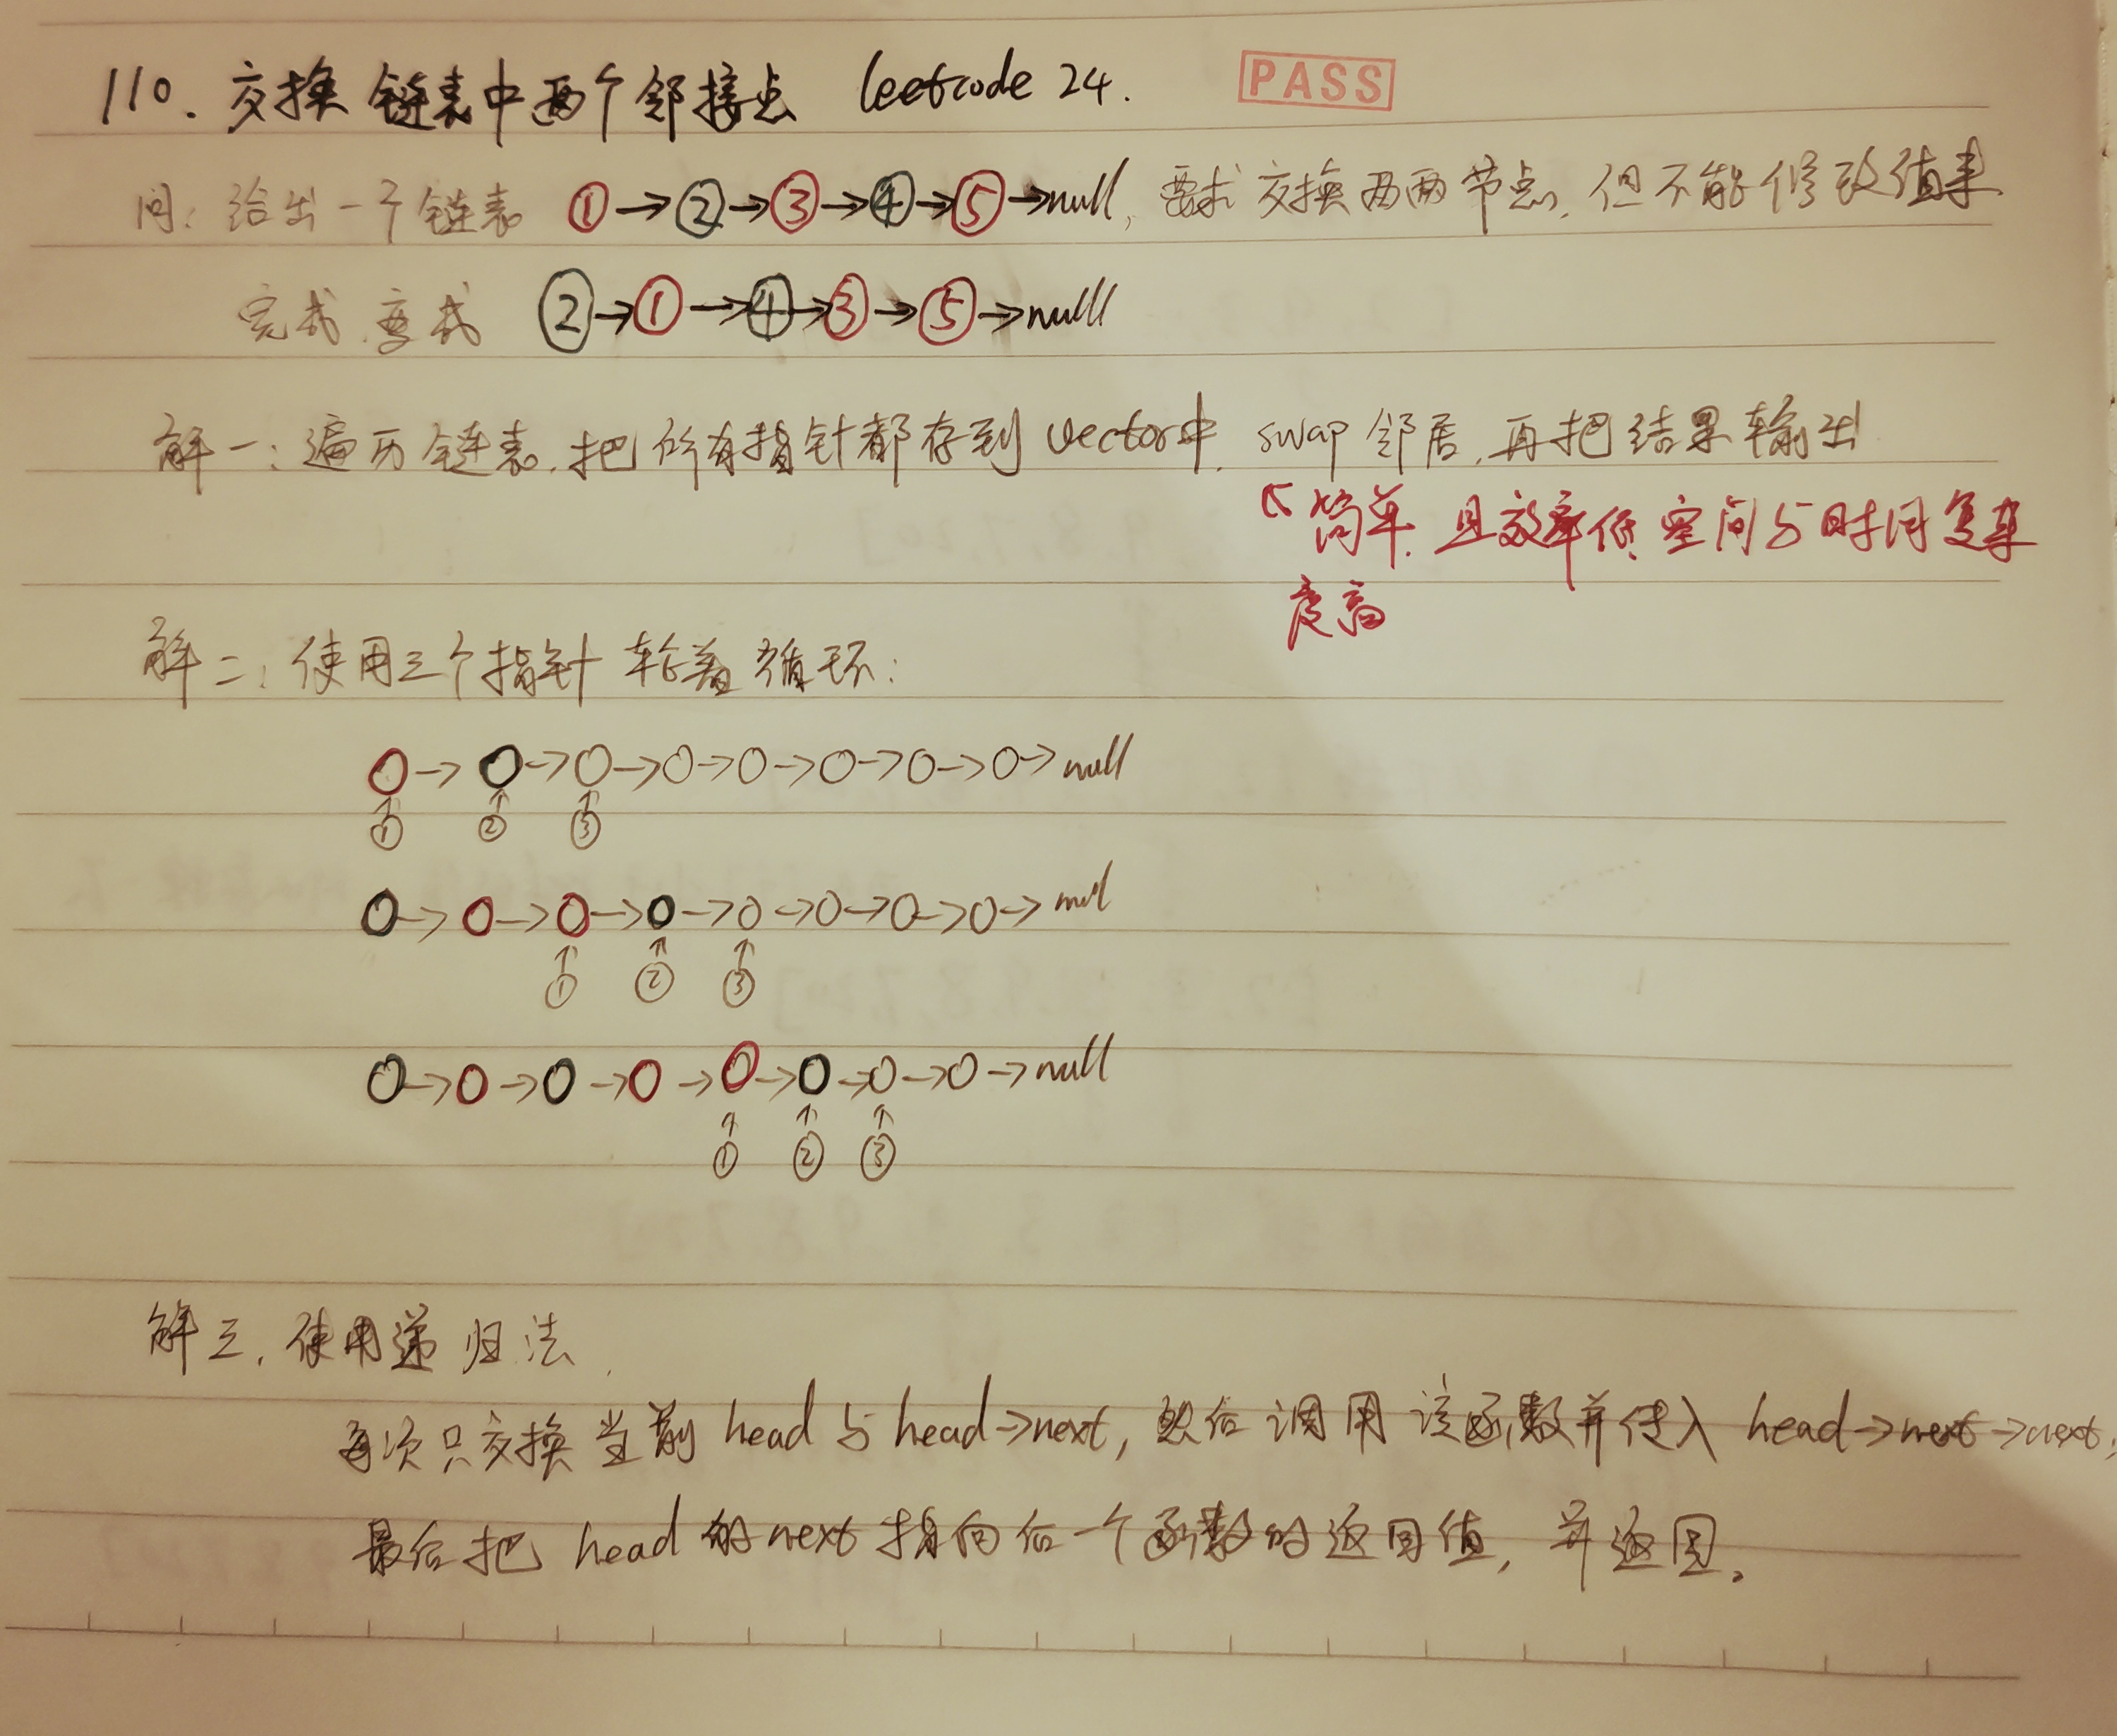 110. 交换链表中两个邻接点 leetcode 24. PASS
问: 给出一个链表 ①→②→③→④→⑤→null, 要求交换两两节点, 但不能修改值来
完成, 变成 ②→①→④→③→⑤→null
解一: 遍历链表, 把所有指针都存到vector中, swap 邻居, 再把结果输出
↖ 简单, 且效率低 空间与时间复杂
度高
解二: 使用三个指针 轮着循环:
O→O→O→O→O→O→O→O→null
① ② ③
O→O→O→O→O→O→O→O→null
① ② ③
O→O→O→O→O→O→O→O→null
① ② ③
解三, 使用递归法
每次只交换当前 head 与 head→next, 然后调用该函数并传入 head→next→next,
最后把 head 的 next 指向后一个函数的返回值, 并返回。